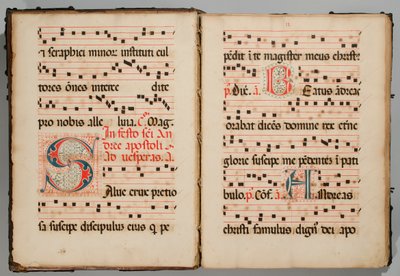 i seraphici minor instituti cul
tores ōnes interce dite
pro nobis alle luia. Mag.
In festo sci An
dree apostoli
Ad vesperas. a.
Salue crux pretio
sa suscipe discipulus eius q̄ pe
pēdit ī te magister meus christꝰ
p. Dix̄. a. Beatus ādreas
orabat dicēs domine rex etne
glorie suscipe me pēdentē ī pati
bulo. p. Cōf. a. Andreas
christi famulus dignꝰ dei apo